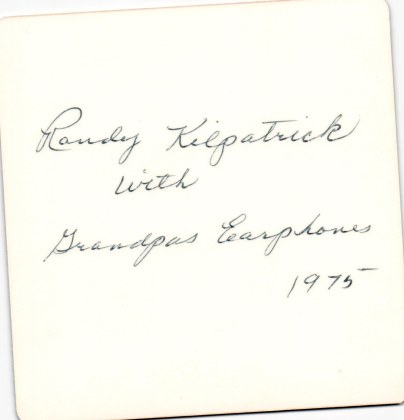 Randy Kilpatrick
with
Grandpas Earphones
1975